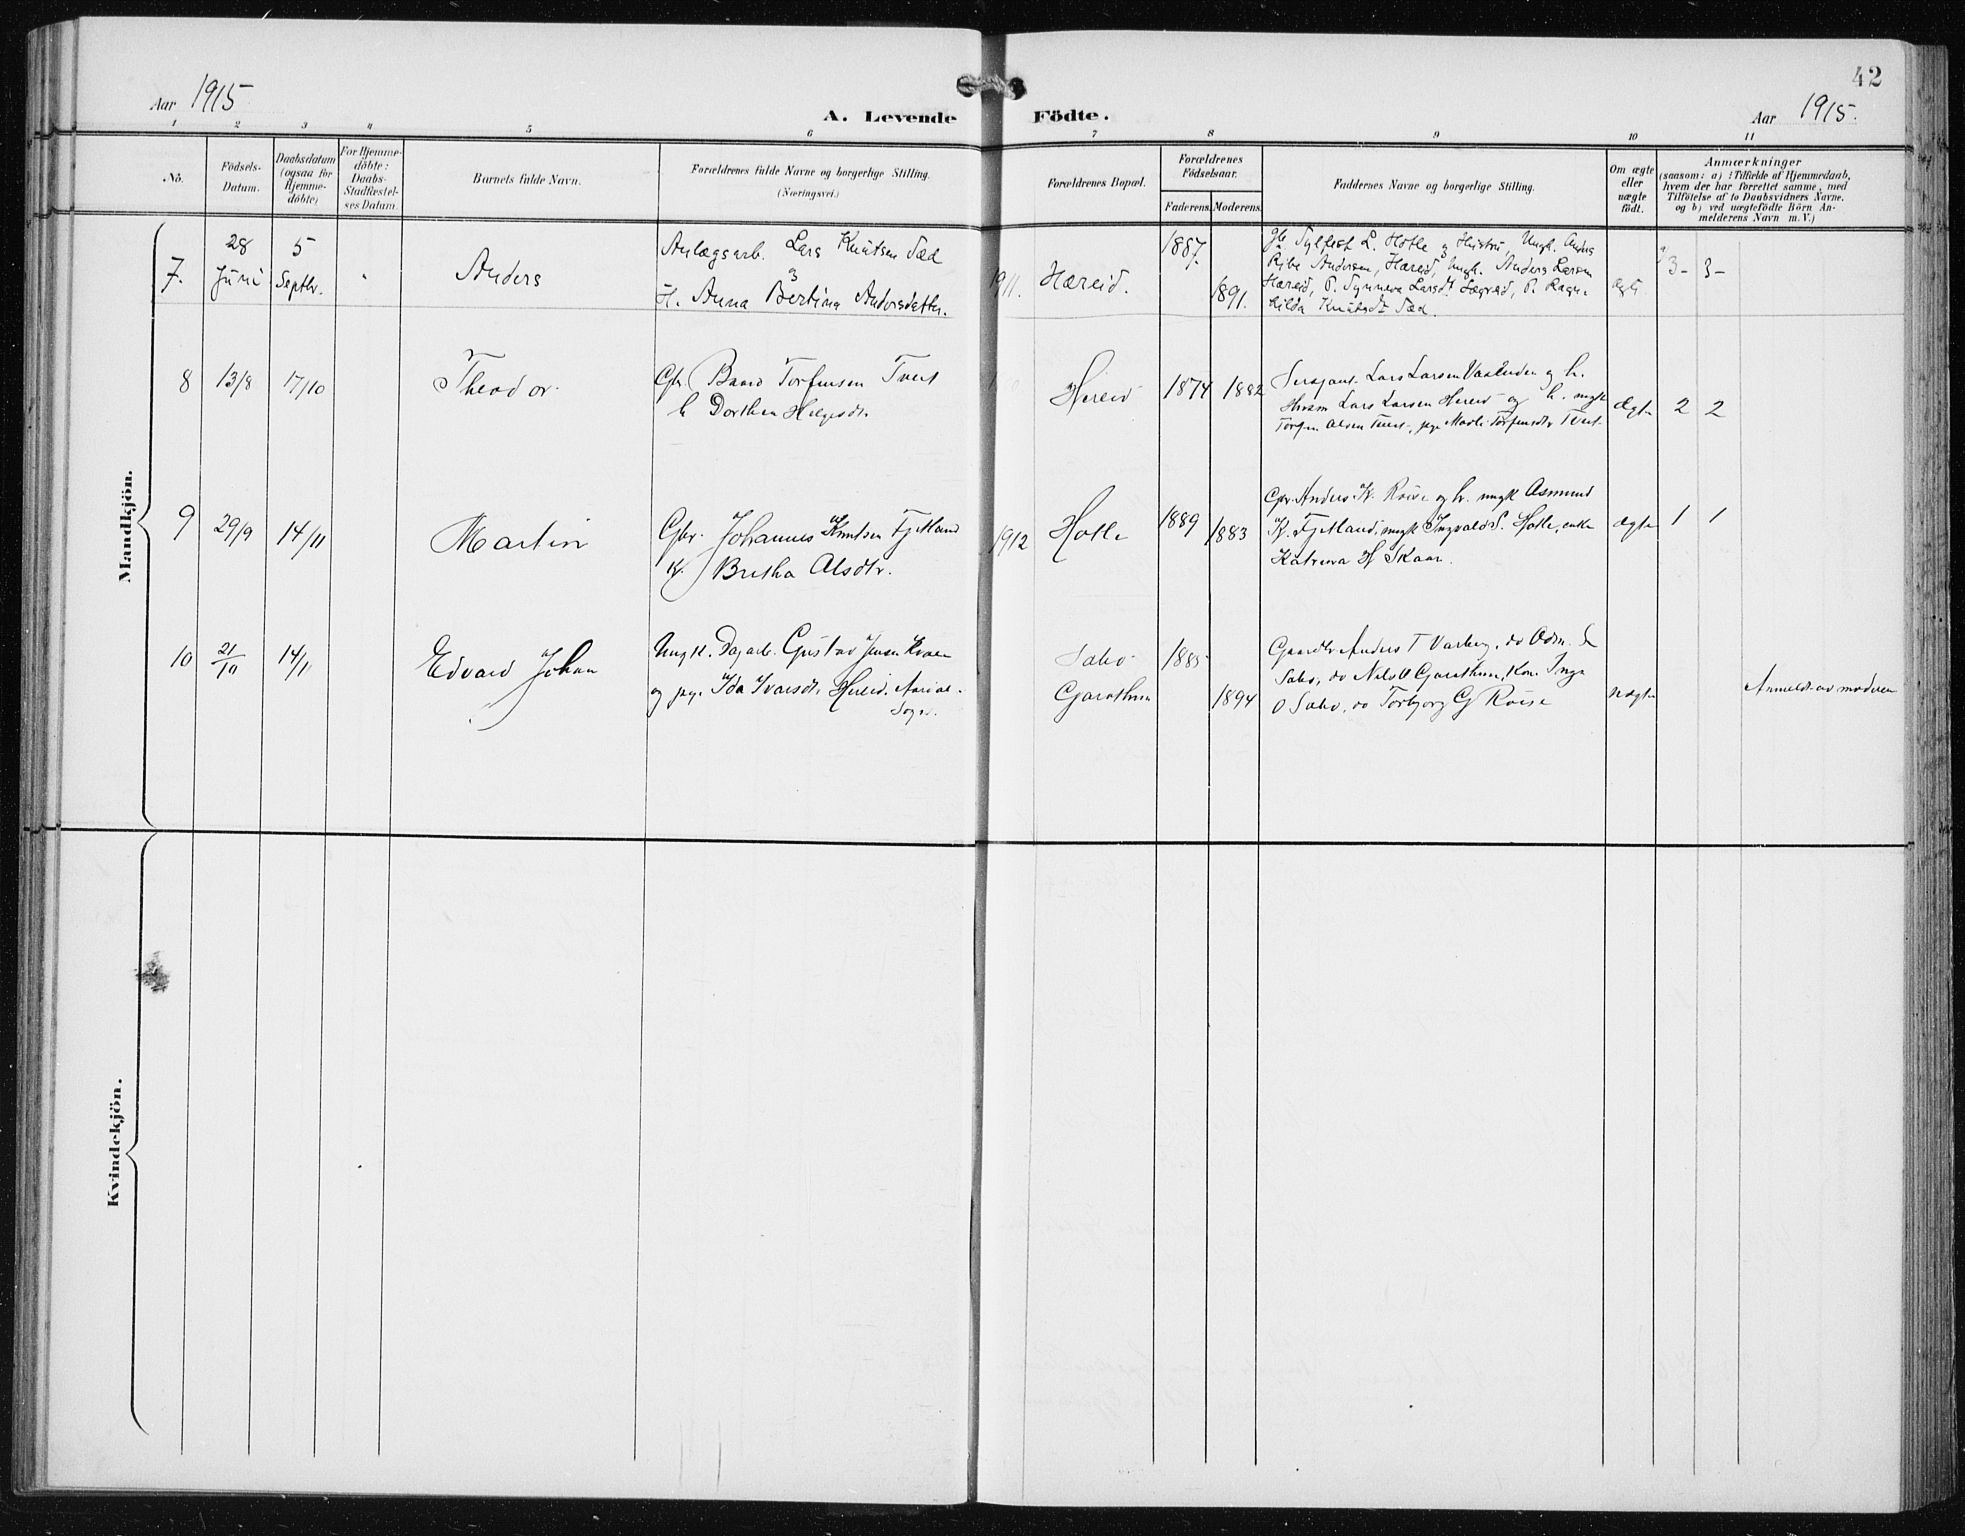 42
Aar 1915
A. Levende Födte.
Aar 1915.
1 2 3 4 5 6 7 8 9 10 11
No.
Födsels-
Datum.
Daabsdatum
(ogsaa for
Hjemme-
döbte)
For Hjemme-
döbte:
Daabs-
Stadfæstel-
ses Datum.
Barnets fulde Navn.
Forældrenes fulde Navne og borgerlige Stilling.
(Næringsvei.)
Forældrenes Bopæl.
Forældrenes
Födselsaar.
Faderens. Moderens.
Faddernes Navne og borgerlige Stilling.
Om ægte
eller
uægte
födt.
Anmærkninger
(saasom: a) i Tilfælde af Hjemmedaab,
hvem der har forrettet samme, med
Tilföielse af to Daabsvidners Navne.
og b) ved uægtefödte Börn An-
melderens Navn m. V.)
Mandkjön.
7. 28 Juni 5 Septbr. Anders
Anlægsarb. Lars Knutsen Sæd
H. Anna Bertina Andersdatter.
1911. Hæreid. 1887. 1891.
Sylfest L. Hotle og Hustru, Ungk. Anders
Andersen, Hæreid, Ungk. Anders Larsen
Hæreid, P. Synneva Larsdt. Sægreid, P. Ragn-
hilda Knutsdt. Sæd.
ægte 3- 3-
8 13/8 17/10 Theodor.
Gbr. Baard Torfinsen Tveit
h Dorthea Helgesdtr.
Hereid 1874 1882
Sersjant Lars Larsen og h.
Lars Larsen Hereid og h. ungk
Tveit, pige Torfinsdtr Tveit
Ægte 2 2
9 29/9 14/11 Martin
Gbr. Johannes Knutsen Fjetland
K. Britha Olsdtr.
1912 Hotle 1889 1883
Gbr. Anders K. Röise og h. ungk Asmund
K. Fjetland, ungk Ingvald S. Hotle, enke
Katrina H Skaar.
ægte 1 1
10 21/10 14/11 Edvard Johan
Ungk. Dagarb. Gustav Jensen
og pige Ida Ivarsdtr Hereid.
Sogn.
Sabø
Garathun
1885 1894
Gaardbr Anders T Varberg, do Odm. L
Sabø, do Nils O Garathun, Kone Inga
O Sabø, do Torbjorg G Röise
uægte
Anmeldt av moderen
Kvindekjön.